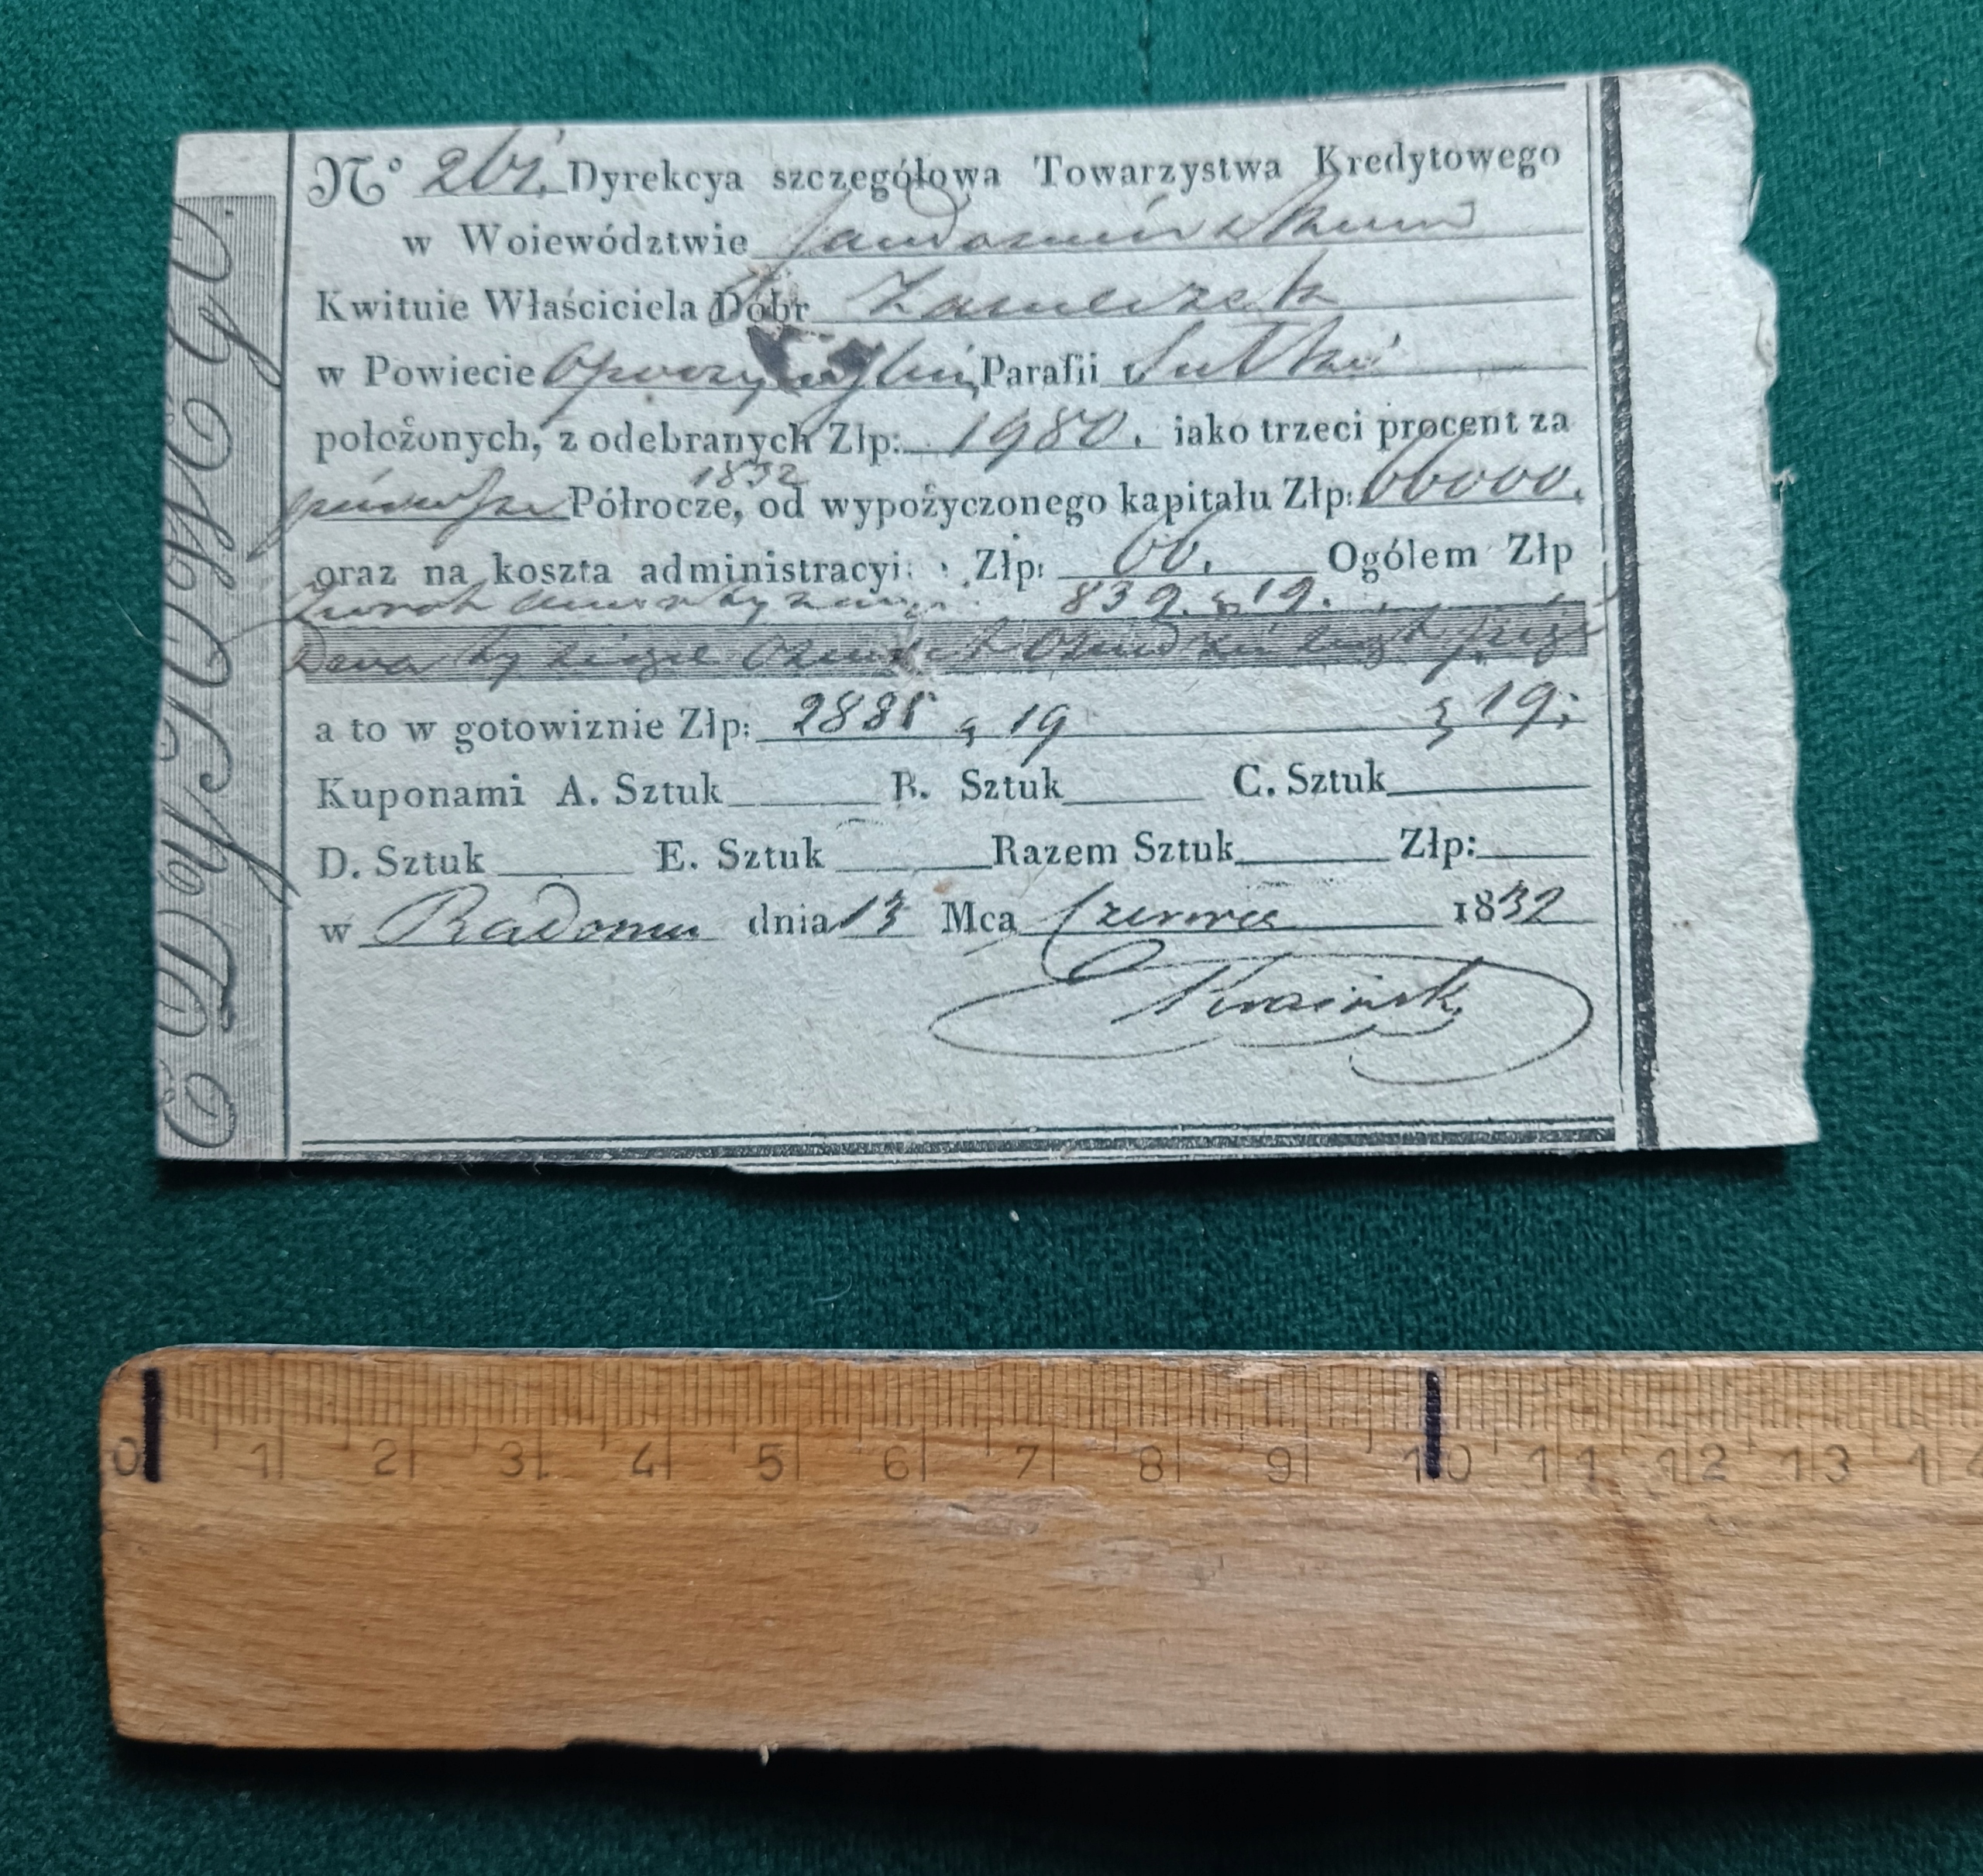 No 261. Dyrekcya szczegółowa Towarzystwa Kredytowego
w Woiewództwie Sandomirskim
Kwituie Właściciela Dóbr Zameczek
w Powiecie Opoczyńskim Parafii
położonych, z odebranych Złp: 1980. iako trzeci procent za
pierwsze Półrocze, 1832 od wypożyczonego kapitału Złp: 66000.
oraz na koszta administracyi: Złp: 66. Ogólem Złp
zwrot 839. g 19.
Dwa tysiące Osiemset Ośmdziesiąt
a to w gotowiznie Złp: 2885 g 19 g 19;
Kuponami A. Sztuk B. Sztuk C. Sztuk
D. Sztuk E. Sztuk Razem Sztuk Złp:
w Radomiu dnia 13 Mca Czerwca 1832
Krasiński
EDYTOWEGO.
0 1 2 3 4 5 6 7 8 9 10 11 12 13 14